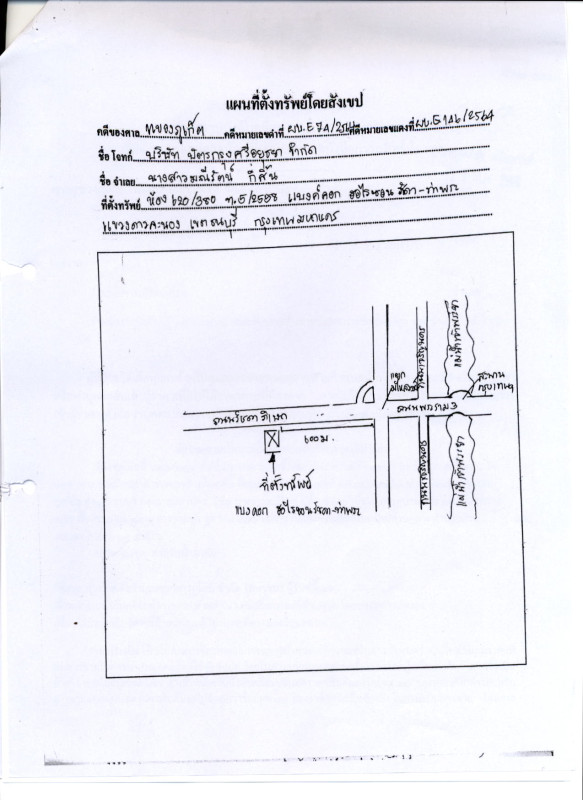 แผนที่ตั้งทรัพย์โดยสังเขป
คดีของศาล แขวงภูเก็ต คดีหมายเลขดำที่ ผบ.E74/25 คดีหมายเลขแดงที่ ผบ.E146/2564
ชื่อ โจทก์ บริษัท บัตรกรุงศรีอยุธยา จำกัด
ชื่อ จำเลย นางสาวมณีรัตน์ กี่สิ้น
ที่ตั้งทรัพย์ ห้อง 620/380 ท.5/2558 แบงค์คอก ฮอไรซอน รัชดา-ท่าพระ
แขวงดาวคะนอง เขตธนบุรี กรุงเทพมหานคร
แม่น้ำเจ้าพระยา
ถนนเจริญนคร
แยก
สะพาน
กรุงเทพฯ
ถนนพระราม 3
ถนนรัชดาภิเษก
600 ม.
ถนนเจริญนคร
แม่น้ำเจ้าพระยา
ที่ตั้งทรัพย์
แบงคอก ฮอไรซอนรัชดา-ท่าพระ